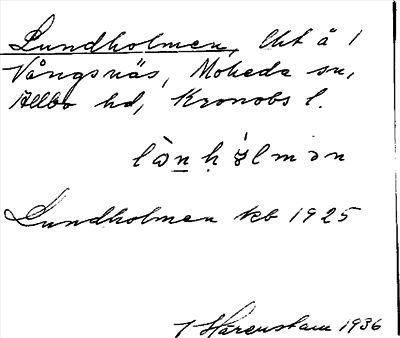 Lundholmen, lht å 1
Vångsnäs, Moheda sn,
Allbo hd, Kronobs l.
lòn̲ḥólmən
Lundholmen kb 1925
J Härenstam 1936